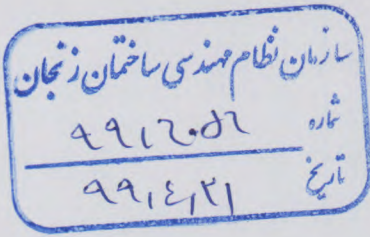 سازمان نظام مهندسی ساختمان زنجان
شماره ۹۹/۶۰۵۶
تاریخ ۹۹/۴/۲۱